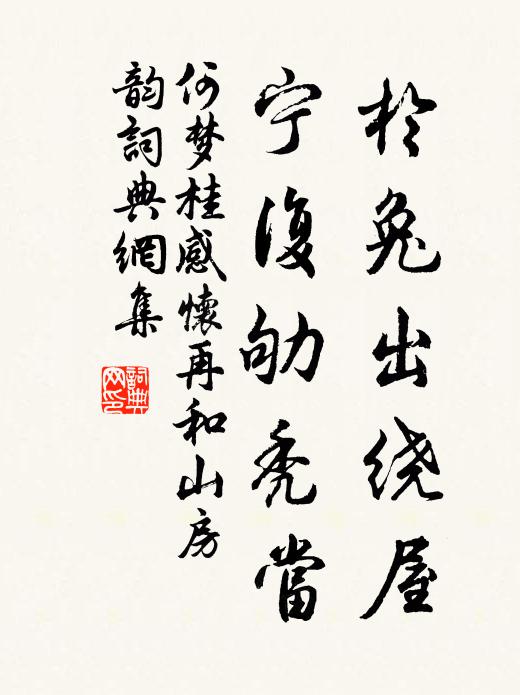 於兔出绕屋
宁復劬秃當
何梦桂感懷再和山房
韵詞典網集
詞典
网印